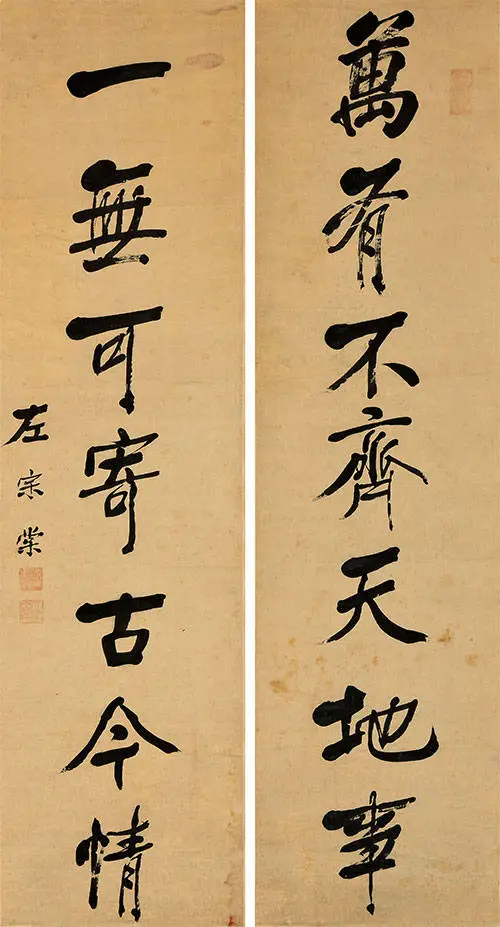 萬有不齊天地事
一無可寄古今情
左宗棠